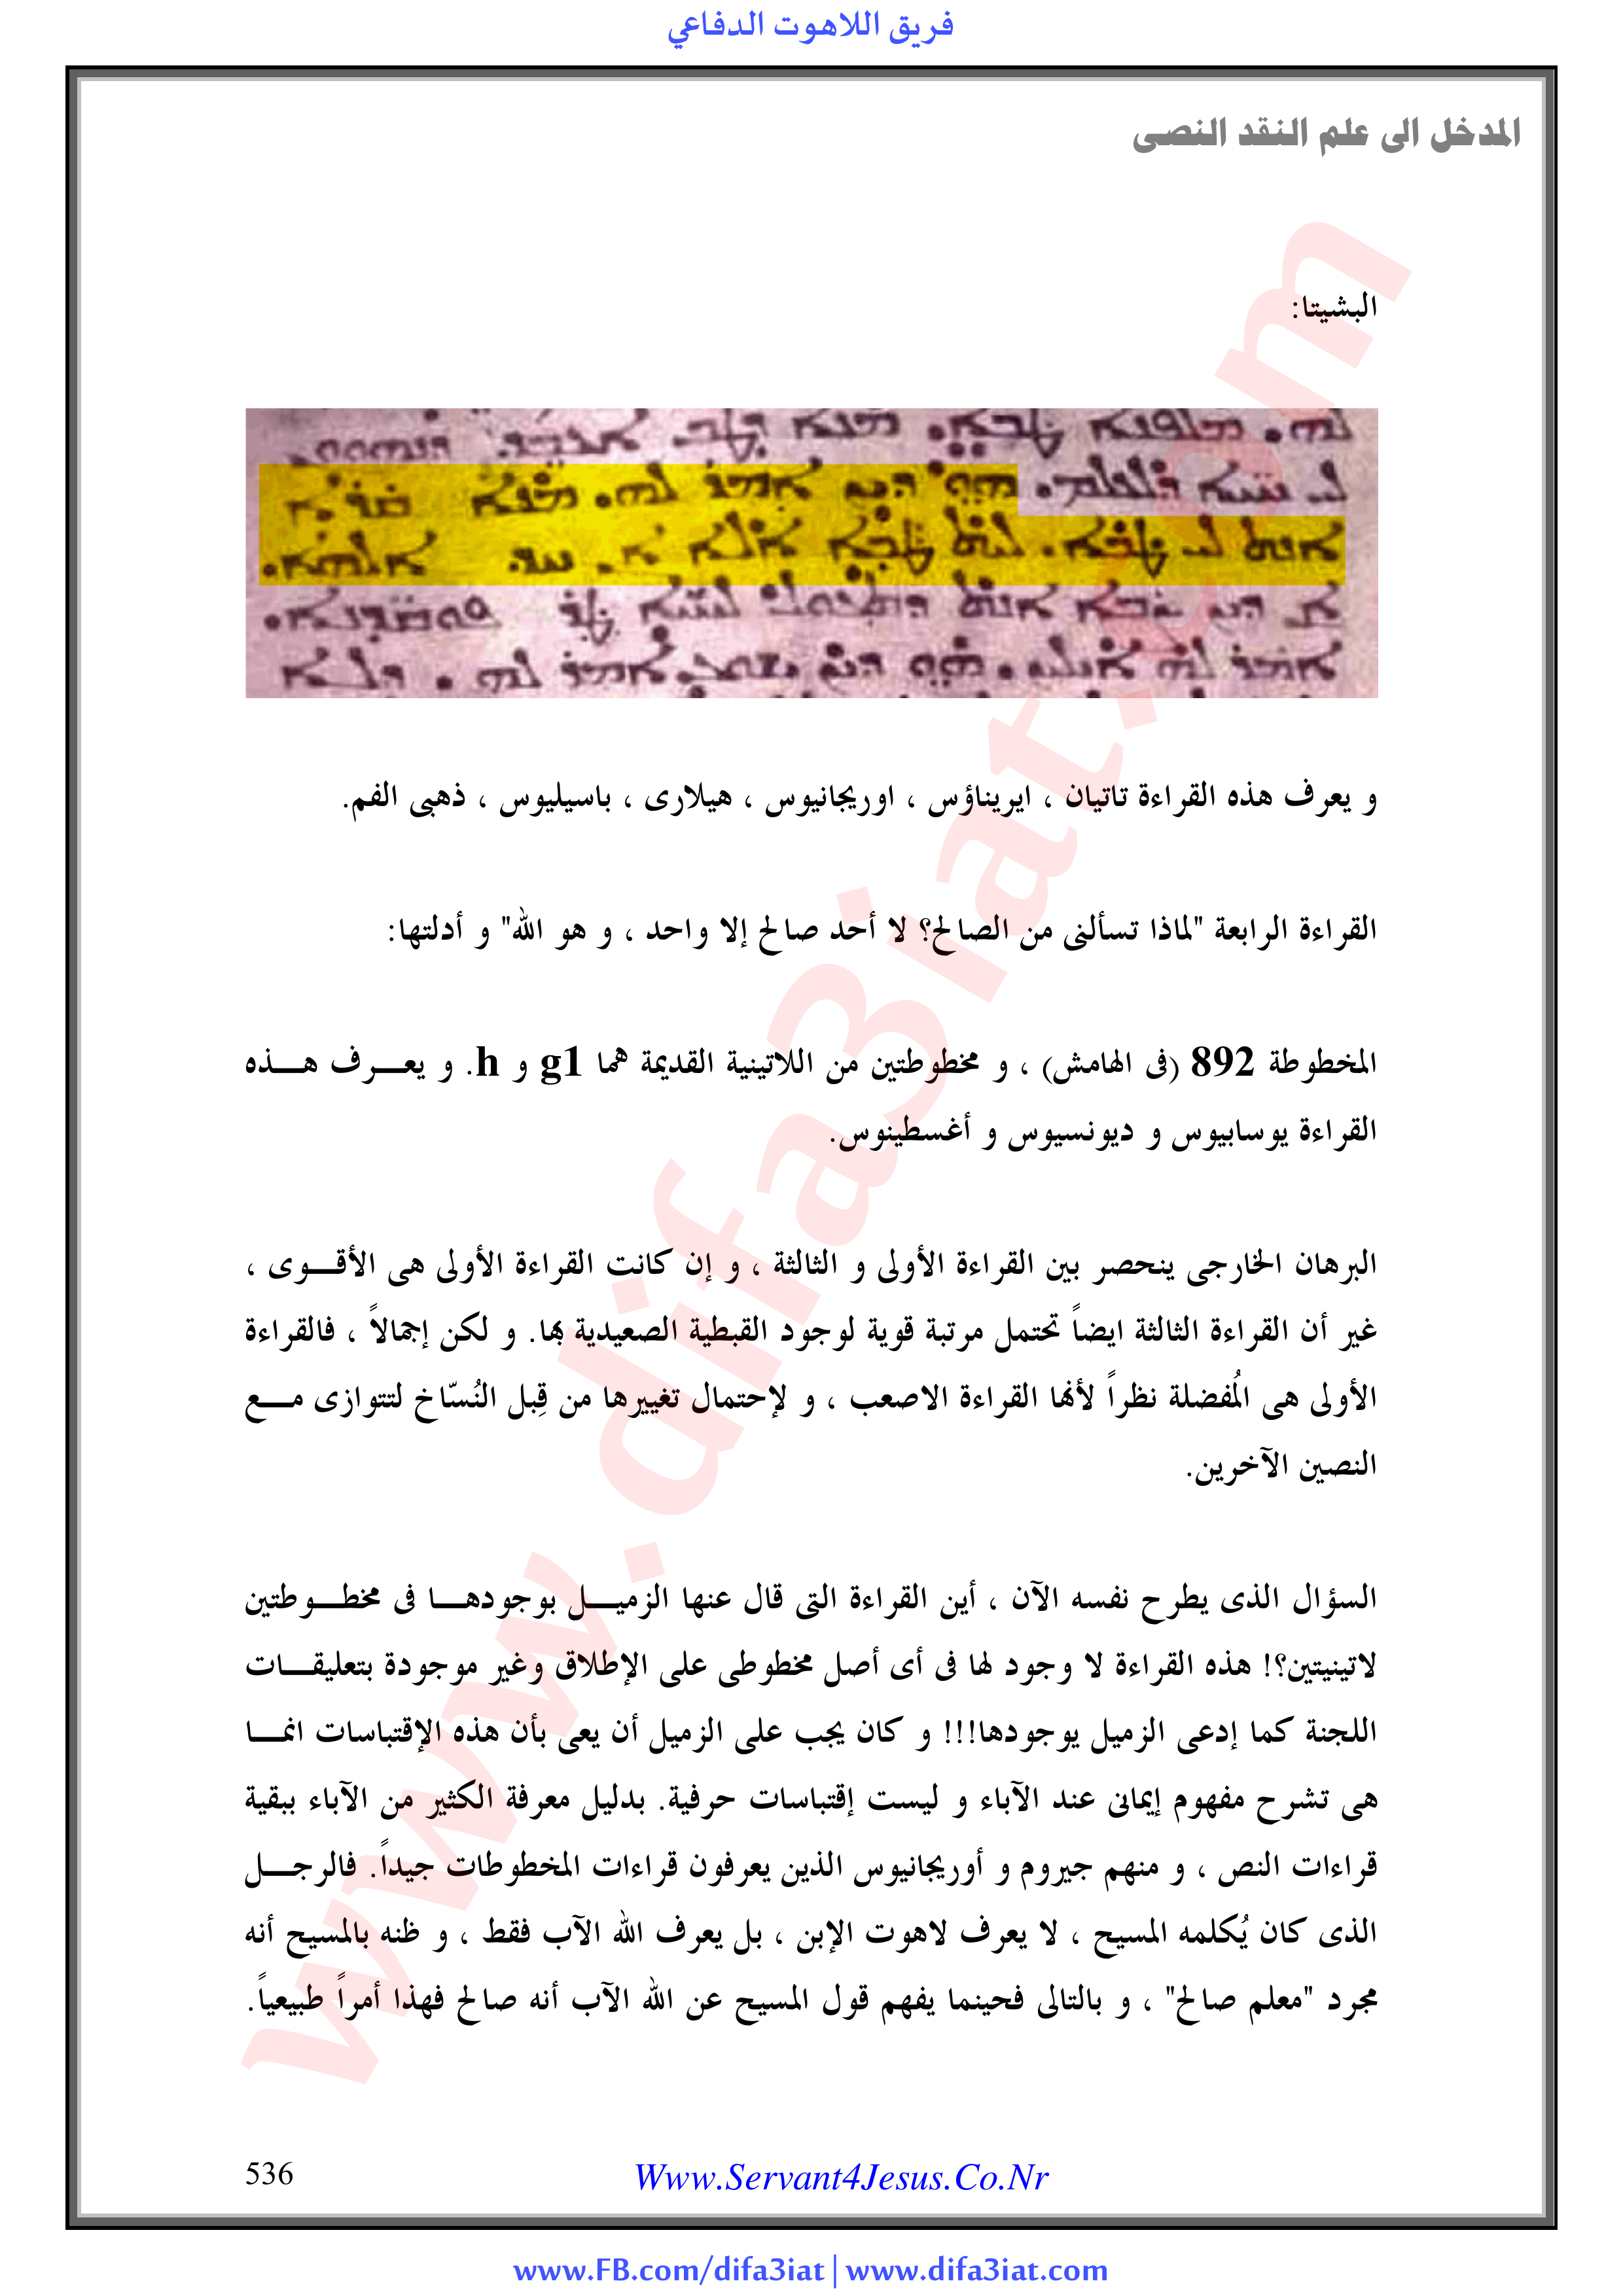 فريق اللاهوت الدفاعي
المدخل الى علم النقد النصى
البشيتا:
و يعرف هذه القراءة تاتيان ، ايريناؤس ، اوريجانيوس ، هيلارى ، باسيليوس ، ذهبى الفم.
القراءة الرابعة "لماذا تسألنى من الصالح؟ لا أحد صالح إلا واحد ، و هو الله" و أدلتها:
المخطوطة 892 (فى الهامش) ، و مخطوطتين من اللاتينية القديمة هما g1 و h. و يعـــرف هـــذه
القراءة يوسابيوس و ديونسيوس و أغسطينوس.
البرهان الخارجى ينحصر بين القراءة الأولى و الثالثة ، و إن كانت القراءة الأولى هى الأقـــوى ،
غير أن القراءة الثالثة ايضاً تحتمل مرتبة قوية لوجود القبطية الصعيدية بها. و لكن إجمالاً ، فالقراءة
الأولى هى المُفضلة نظراً لأنها القراءة الاصعب ، و لإحتمال تغييرها من قِبل النُسّاخ لتتوازى مـــع
النصين الآخرين.
السؤال الذى يطرح نفسه الآن ، أين القراءة التى قال عنها الزميـــل بوجودهـــا فى مخطـــوطتين
لاتينيتين؟! هذه القراءة لا وجود لها فى أى أصل مخطوطى على الإطلاق وغير موجودة بتعليقـــات
اللجنة كما إدعى الزميل يوجودها!!! و كان يجب على الزميل أن يعى بأن هذه الإقتباسات انمـــا
هى تشرح مفهوم إيمانى عند الآباء و ليست إقتباسات حرفية. بدليل معرفة الكثير من الآباء ببقية
قراءات النص ، و منهم جيروم و أوريجانيوس الذين يعرفون قراءات المخطوطات جيداً. فالرجـــل
الذى كان يُكلمه المسيح ، لا يعرف لاهوت الإبن ، بل يعرف الله الآب فقط ، و ظنه بالمسيح أنه
مجرد "معلم صالح" ، و بالتالى فحينما يفهم قول المسيح عن الله الآب أنه صالح فهذا أمراً طبيعياً.
www.difa3iat.com
Www.Servant4Jesus.Co.Nr
536
www.FB.com/difa3iat | www.difa3iat.com